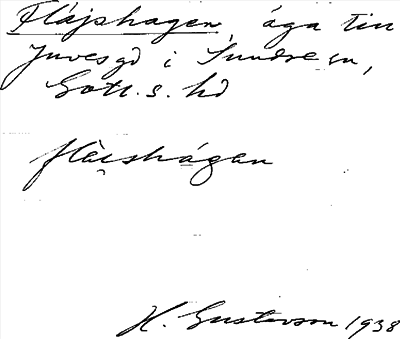 Flåjshagen, äga till
Juvesgd i Sundre sn,
Gotl. s. hd
flàishágen
H. Gustavson 1938